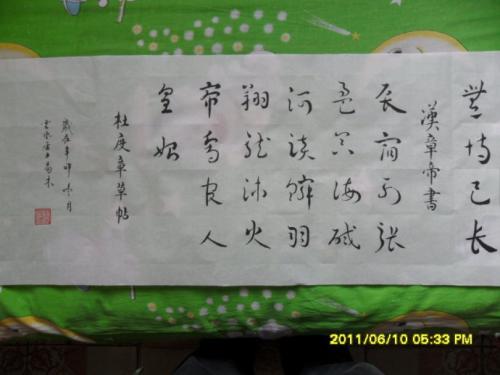 恃己长
漢章帝書
辰宿列張
海鹹
河淡鱗羽
翔龍師火
帝鳥官人
皇始
杜度章草帖
歲在辛卯 月
2011/06/10 05:33 PM